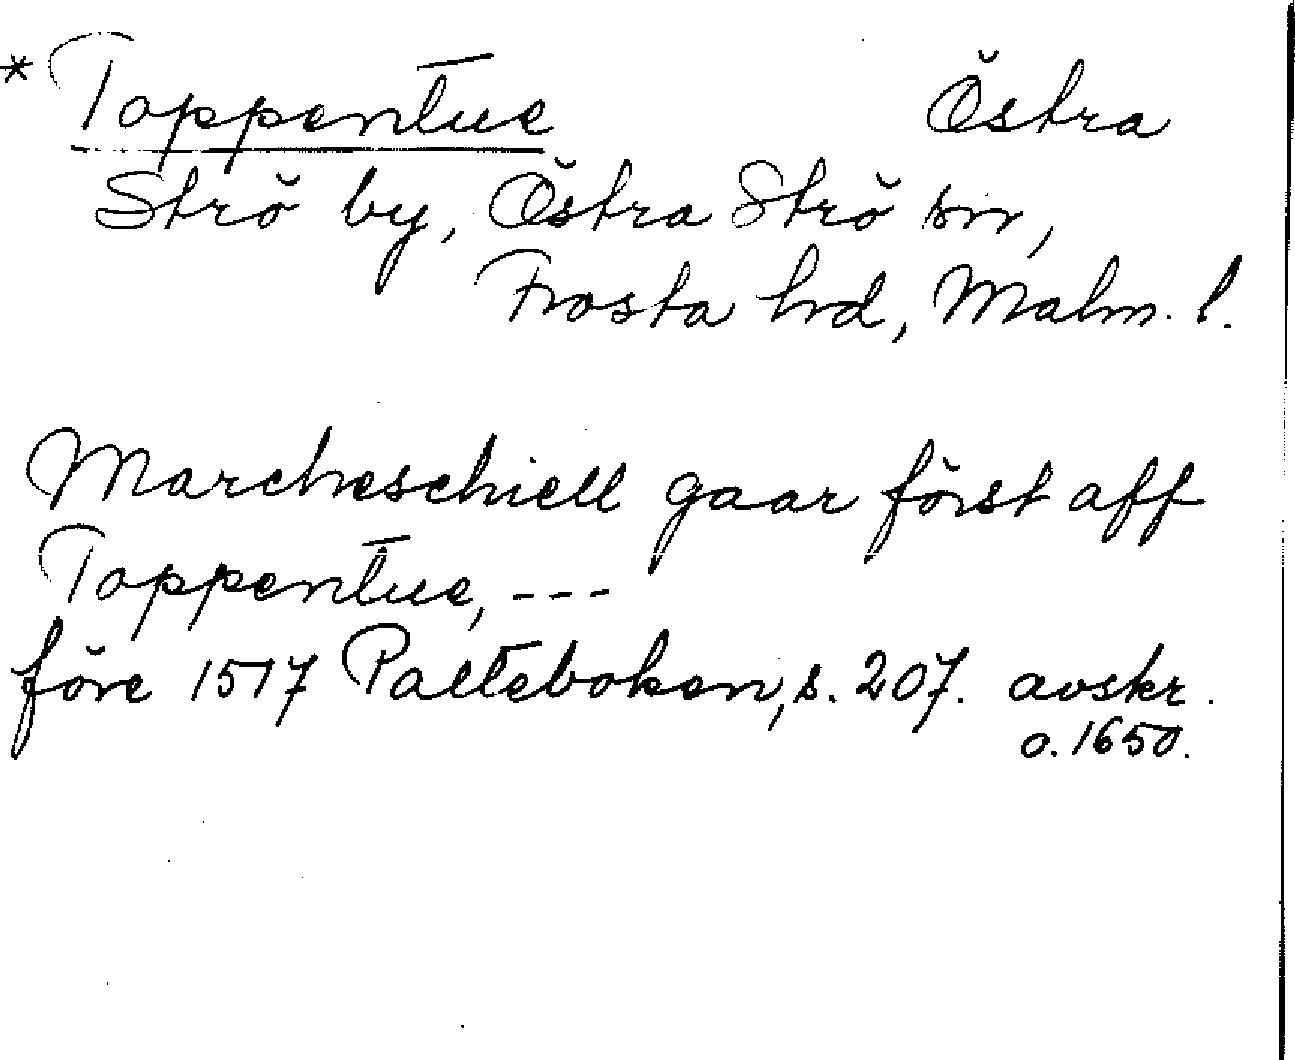 * Toppentue Östra
Strö by, Östra Strö sn,
Frosta hrd, Malm. l.
Marcheschiell gaar först aff
Toppentue, ---
före 1517 Palteboken, s. 207. avskr.
o. 1650.